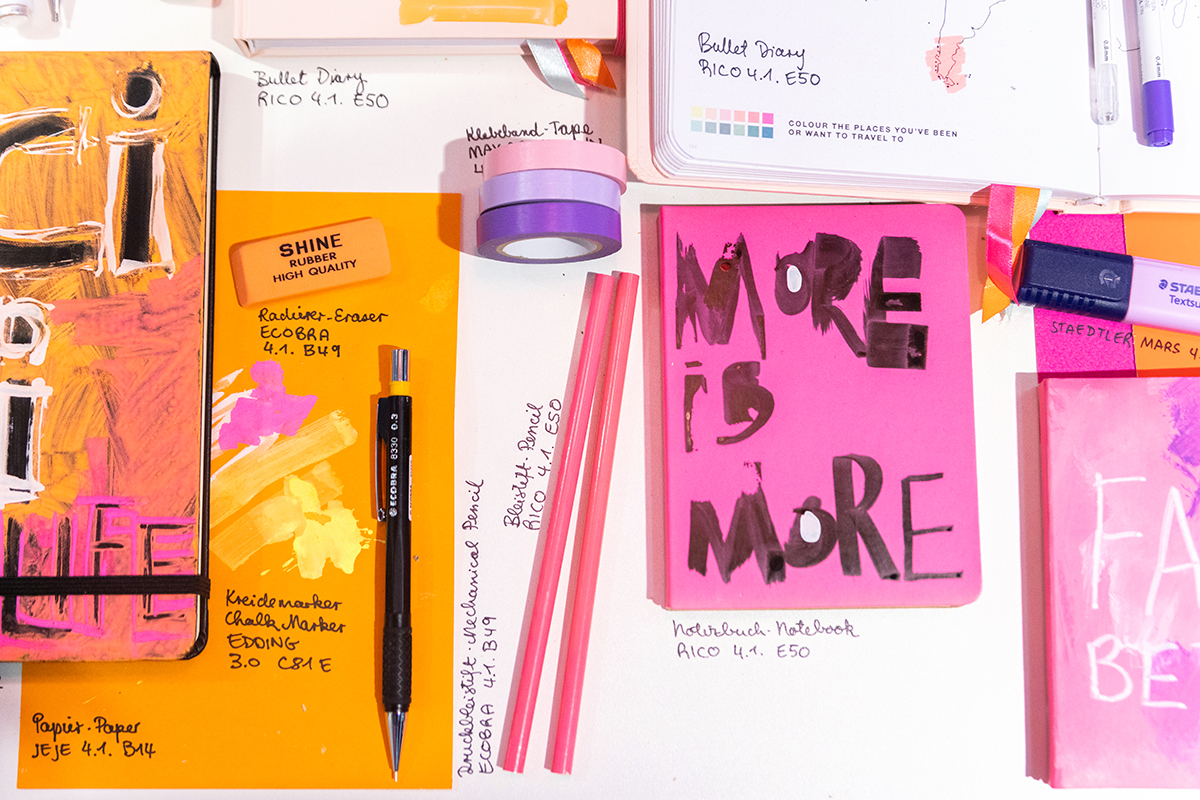 Bullet Diary
RICO 4.1. E50
Bullet Diary
RICO 4.1. E50
COLOUR THE PLACES YOU'VE BEEN
OR WANT TO TRAVEL TO
0.8mm
0.4mm
Klebeband-Tape
MAY
SHINE
RUBBER
HIGH QUALITY
Radierer-Eraser
ECOBRA
4.1. B49
ECOBRA 8330 0.3
Kreidemarker
Chalk Marker
EDDING
3.0 C81 E
Papier-Paper
JEJE 4.1. B14
Druckbleistift-Mechanical Pencil
ECOBRA 4.1. B49
Bleistift-Pencil
RICO 4.1. E50
MORE
is
MORE
Notizbuch-Notebook
RICO 4.1. E50
STAE
Textsu
STAEDTLER MARS 4
FA
BE
LIFE